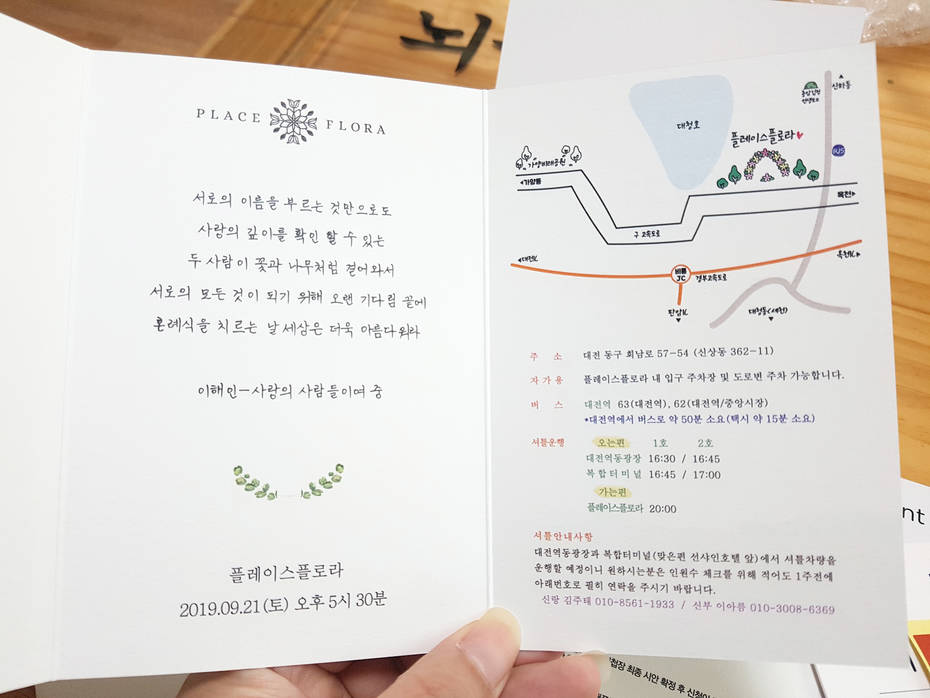 PLACE FLORA
서로의 이름을 부르는 것만으로도
사랑의 깊이를 확인 할 수 있는
두 사람이 꽃과 나무처럼 걸어와서
서로의 모든 것이 되기 위해 오랜 기다림 끝에
혼례식을 치르는 날 세상은 더욱 아름다워라
이해인-사랑의 사람들이여 중
플레이스플로라
2019.09.21(토) 오후 5시 30분
신하동
대청호
플레이스플로라
BUS
가양비래공원
◂가양동
옥천▸
구 고속도로
◂대전IC
비룡
JC
경부고속도로
옥천IC▸
판암IC
대청동(세천)
주 소 대전 동구 회남로 57-54 (신상동 362-11)
자가용 플레이스플로라 내 입구 주차장 및 도로변 주차 가능합니다.
버 스 대전역 63(대전역), 62(대전역/중앙시장)
*대전역에서 버스로 약 50분 소요(택시 약 15분 소요)
셔틀운행 오는편 1호 2호
대전역동광장 16:30 / 16:45
복합터미널 16:45 / 17:00
가는편
플레이스플로라 20:00
셔틀안내사항
대전역동광장과 복합터미널(맞은편 선샤인호텔 앞)에서 셔틀차량을
운행할 예정이니 원하시는분은 인원수 체크를 위해 적어도 1주전에
아래번호로 필히 연락을 주시기 바랍니다.
신랑 김주태 010-8561-1933 / 신부 이아름 010-3008-6369
최종 시안 확정 후
nt